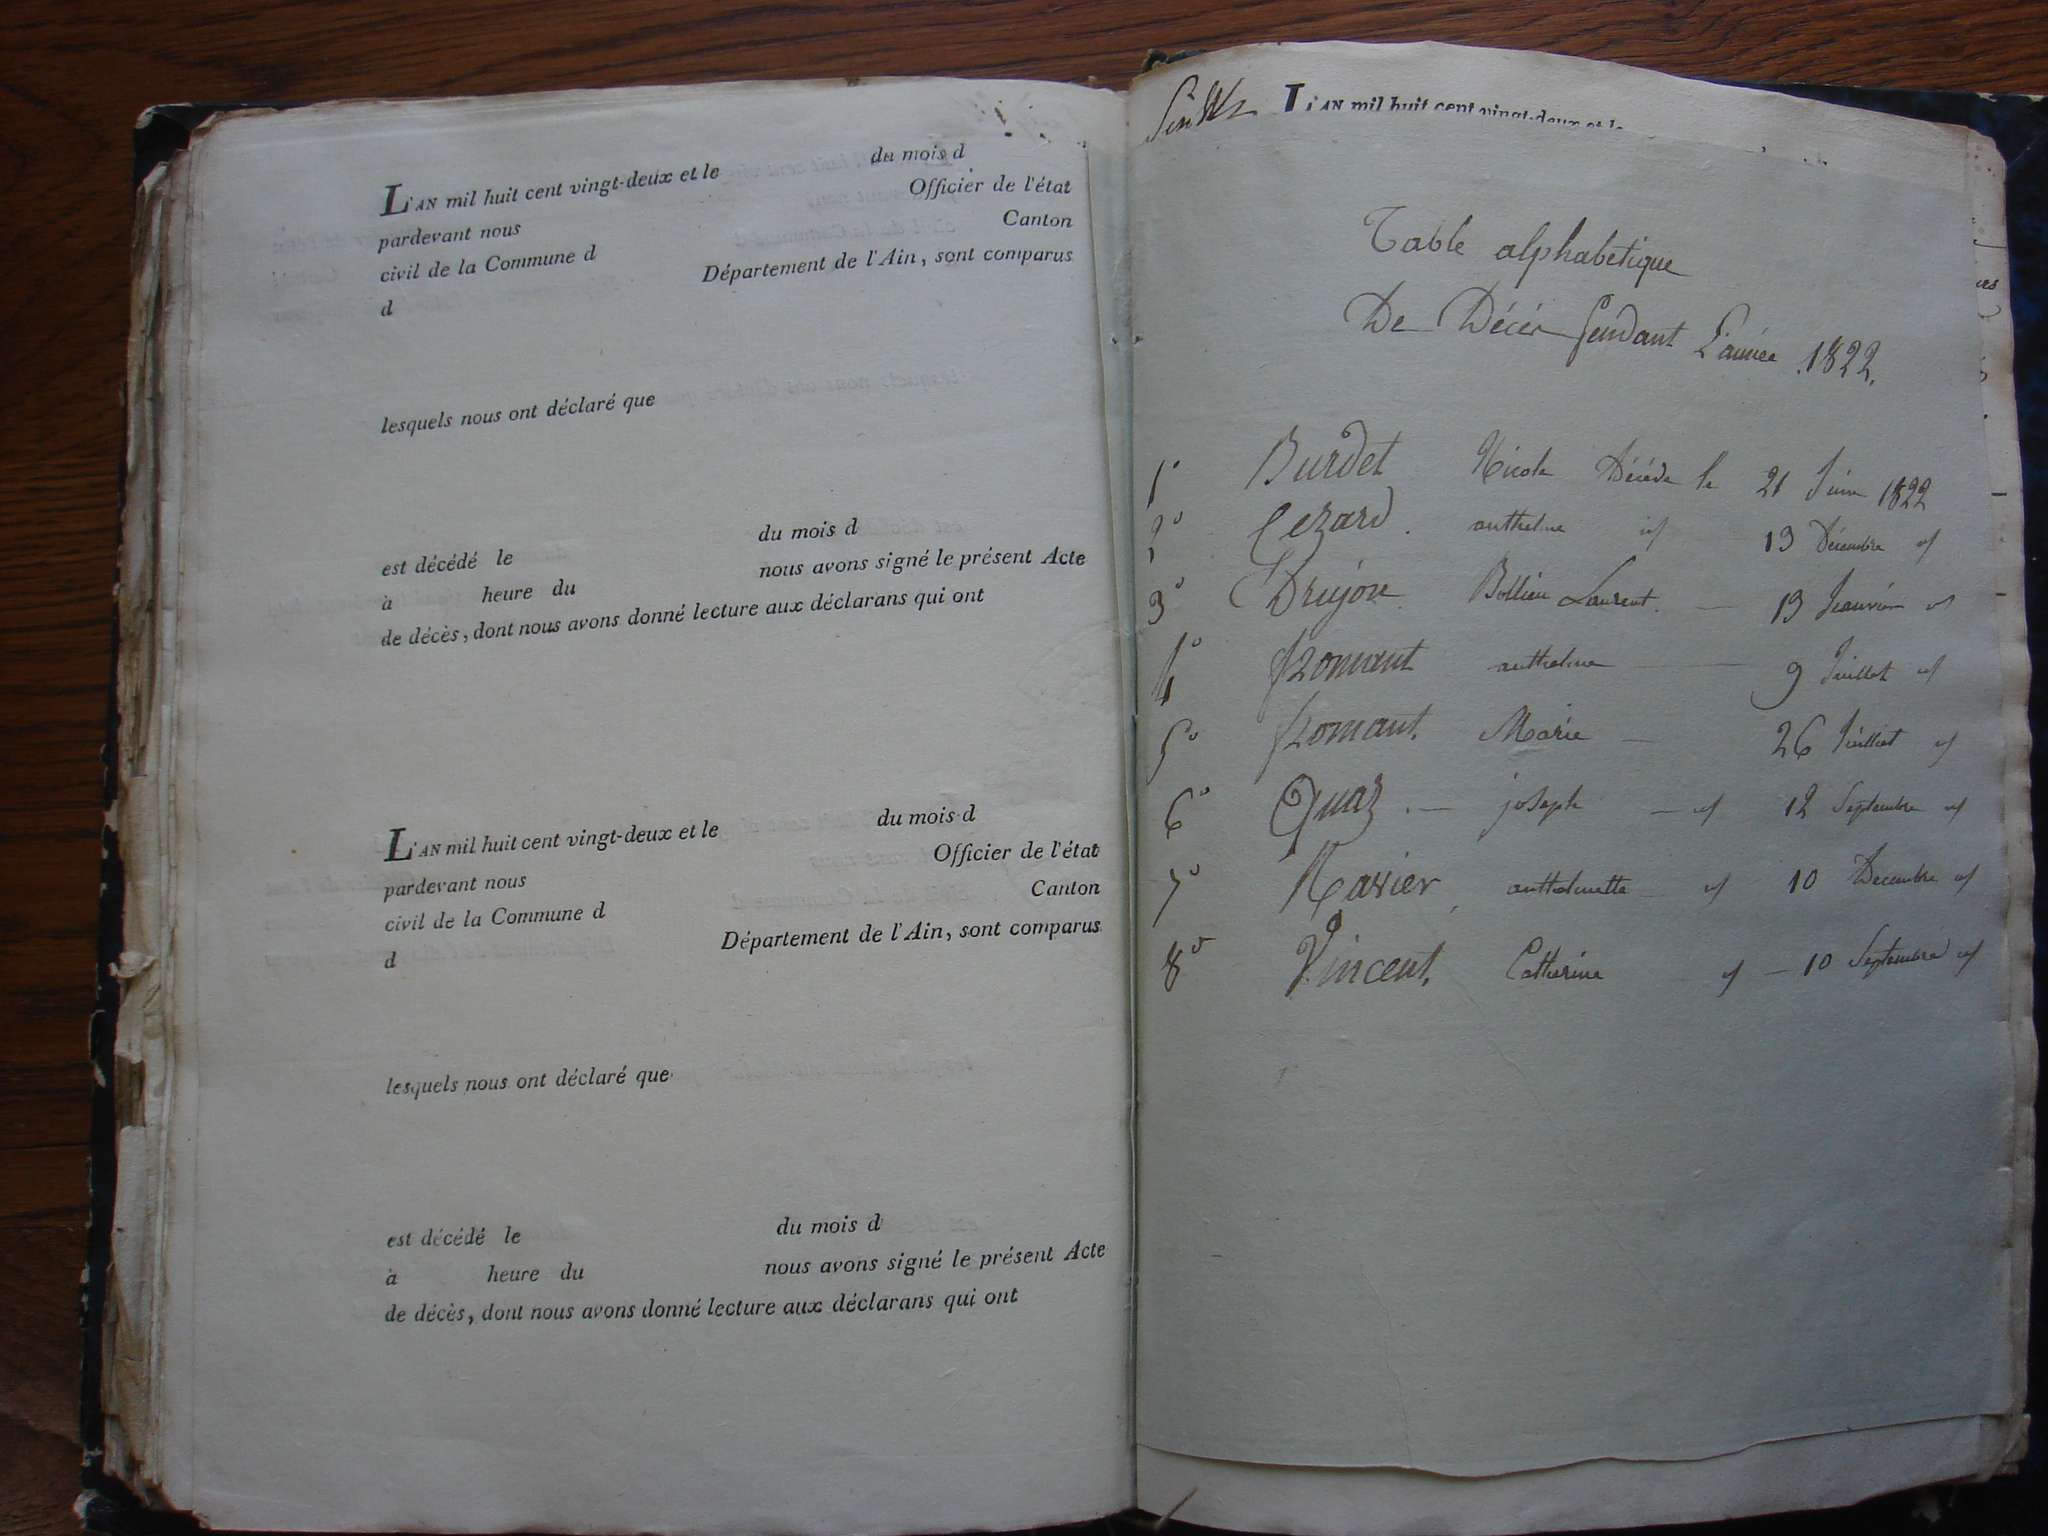 du mois d
L'AN mil huit cent vingt-deux et le
Officier de l'état
pardevant nous
Canton
civil de la Commune d
Département de l'Ain, sont comparus
d
lesquels nous ont déclaré que
du mois d
est décédé le
nous avons signé le présent Acte
à heure du
de décès, dont nous avons donné lecture aux déclarans qui ont
du mois d
L'AN mil huit cent vingt-deux et le
Officier de l'état
pardevant nous
Canton
civil de la Commune d
Département de l'Ain, sont comparus
d
lesquels nous ont déclaré que
du mois d
est décédé le
nous avons signé le présent Acte
à heure du
de décès, dont nous avons donné lecture aux déclarans qui ont
L'AN mil huit cent vingt-deux et le
Table alphabetique
De Décès pendant L'année 1822.
1° Burdet Nicole Décédé le 21 Juin 1822
2° Cezard. anthelme id 13 Décembre id
3° Drujon Laurent. — 13 Jeanvier id
4° fromant anthelme — 9 Juillet id
5° fromant. Marie — 26 Juillet id
6° Guaz. — joseph — id 12 Septembre id
7° Ravier, anthelmette — id 10 Decembre id
8° Vincent. Catherine id — 10 Septembre id